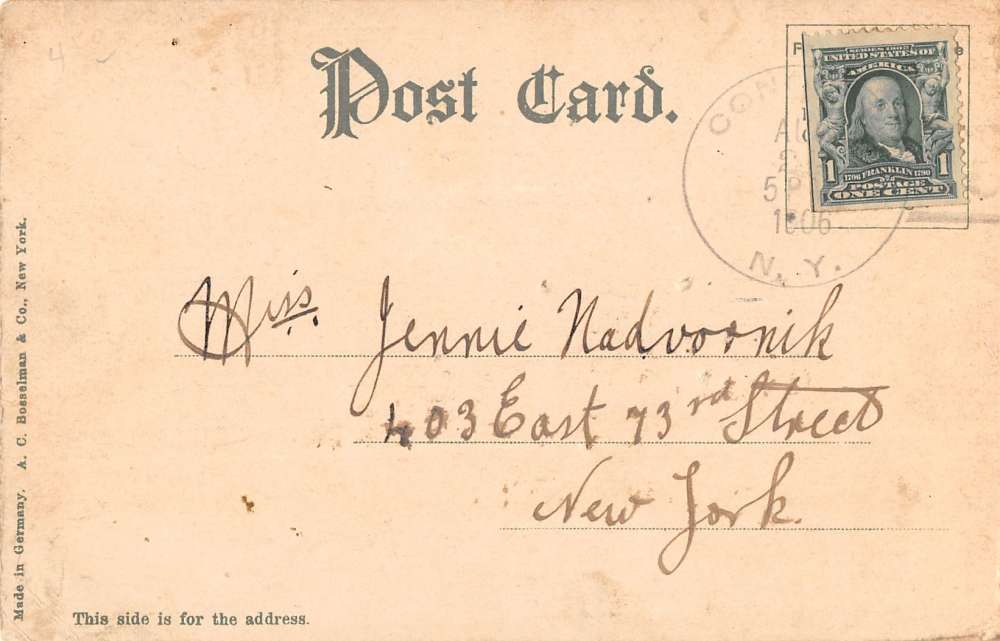 Post Card.
SERIES 1902
UNITED STATES OF
AMERICA
1 1
1706 FRANKLIN 1790
POSTAGE
ONE CENT
5 P
1906
N. Y.
Miss. Jennie Nadvoornik
403 East 73rd Street
New York.
Made in Germany. A. C. Bosselman & Co., New York.
This side is for the address.